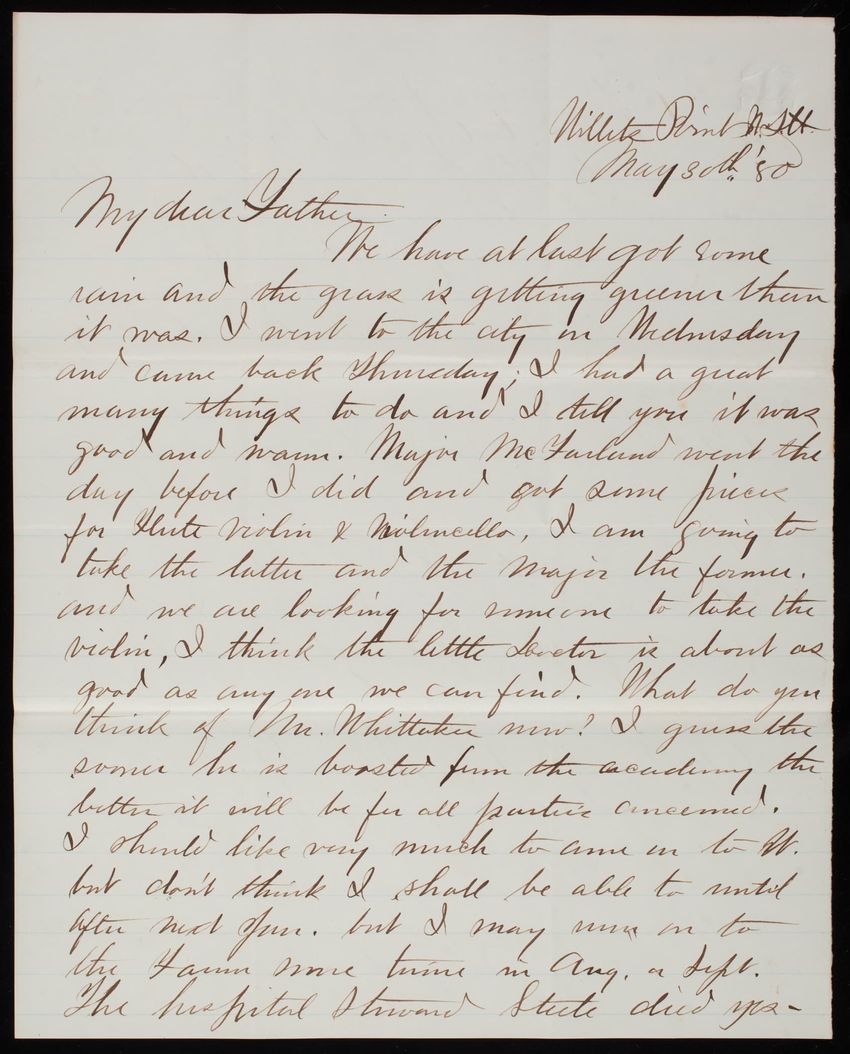 Willets Point N.Y.H.
May 30th '80
My dear Father.
We have at last got some
rain and the grass is getting greener than
it was. I went to the city on Wednesday
and came back Thursday; I had a great
many things to do and I tell you it was
good and warm. Major McFarland went the
day before I did and got some pieces
for Flute violin & Violincello, I am going to
take the latter and the Major the former.
and we are looking for someone to take the
violin, I think the little Doctor is about as
good as any one we can find. What do you
think of Mr. Whittaker now? I guess the
sooner he is boosted from the academy the
better it will be for all parties concerned.
I should like very much to come on to W.
but don't think I shall be able to until
after next Jan. but I may run on to
the Farm some time in Aug. or Sept.
The hospital Steward Steele died yes-